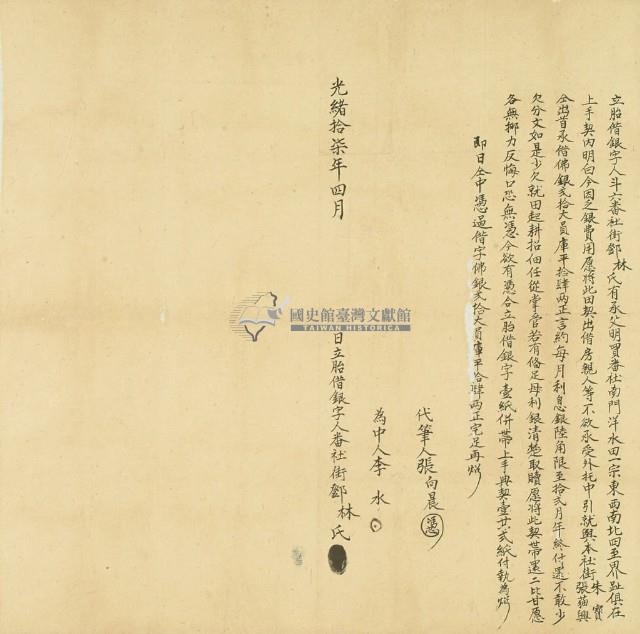 立胎借銀字人斗六番社街鄧林氏有承父明買番社南門洋水田一宗東西南北四至界趾俱在
上手契內明白今因乏銀費用愿將此田契出借房親人等不欲承受外托中引就與本社街朱寶張蒲興
仝出首承借佛銀貳拾大員庫平拾肆兩正言約每月利息銀陸角限至拾貳月年終付還不敢少
欠分文如是少欠就田起耕招佃任從掌管若有俻足母利銀清楚取贖愿將此契帶還二比甘愿
各無挪力反悔口恐無憑今欲有憑合立胎借銀字壹紙併帶上手典契壹廿貳紙付執為炤
即日仝中憑過借字佛銀貳拾大員庫平拾肆兩正完足再炤
代筆人張向晨憑
為中人李水
光緒拾柒年四月
日立胎借銀字人番社街鄧林氏
國史館臺灣文獻館
TAIWAN HISTORICA